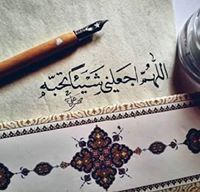 اللهم اجعلني شيئا تحبه